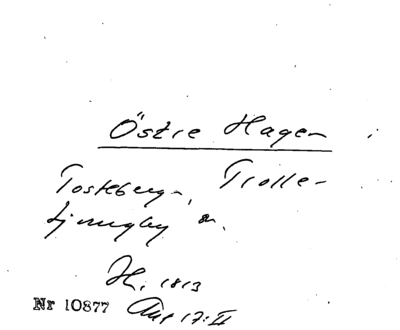 Östre Hagen
Tosteberga, Trolle-
Ljungby sn.
H. 1813
Nr 10877 Aur 17:II